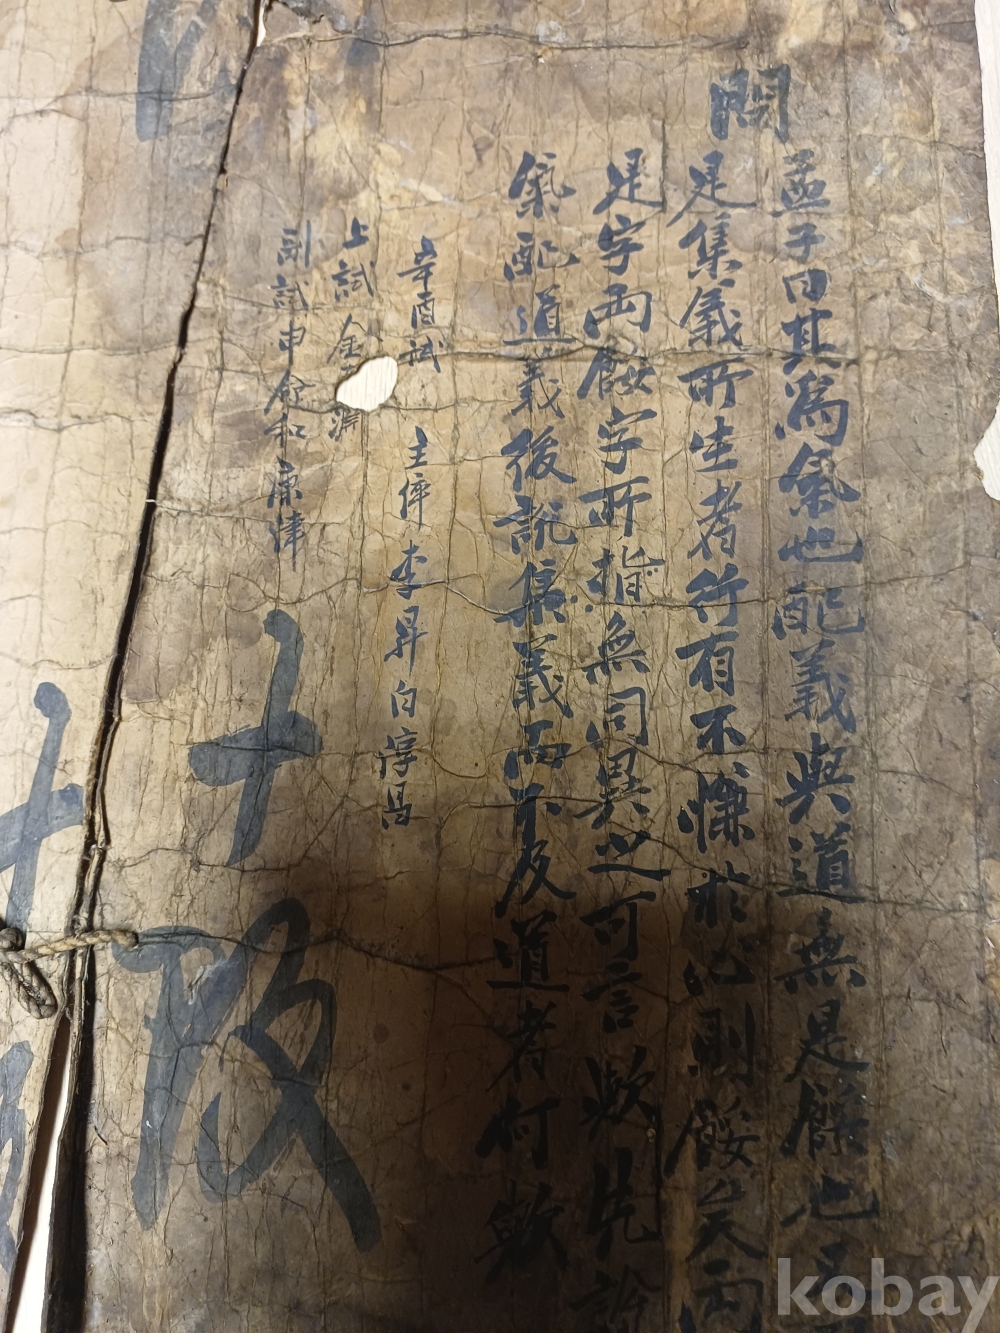 問
孟子曰其爲氣也配義與道無是餒也
是集義所生者行有不慊於心則餒矣兩
是字兩餒字所指無同異之可言歟先訟
氣配道義後訟集義而不及道者何歟
辛酉試 主倅 李昇 白淳昌
上試 金
副試申 和 康津
十
kobay